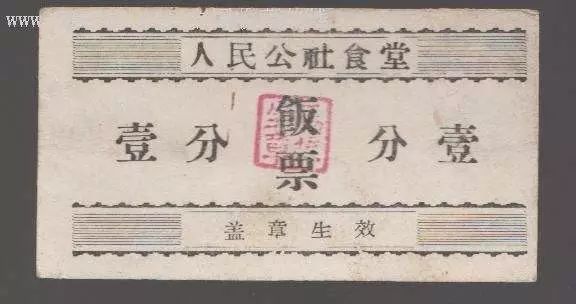 www
人民公社食堂
壹分 飯票 分壹
盖章生效